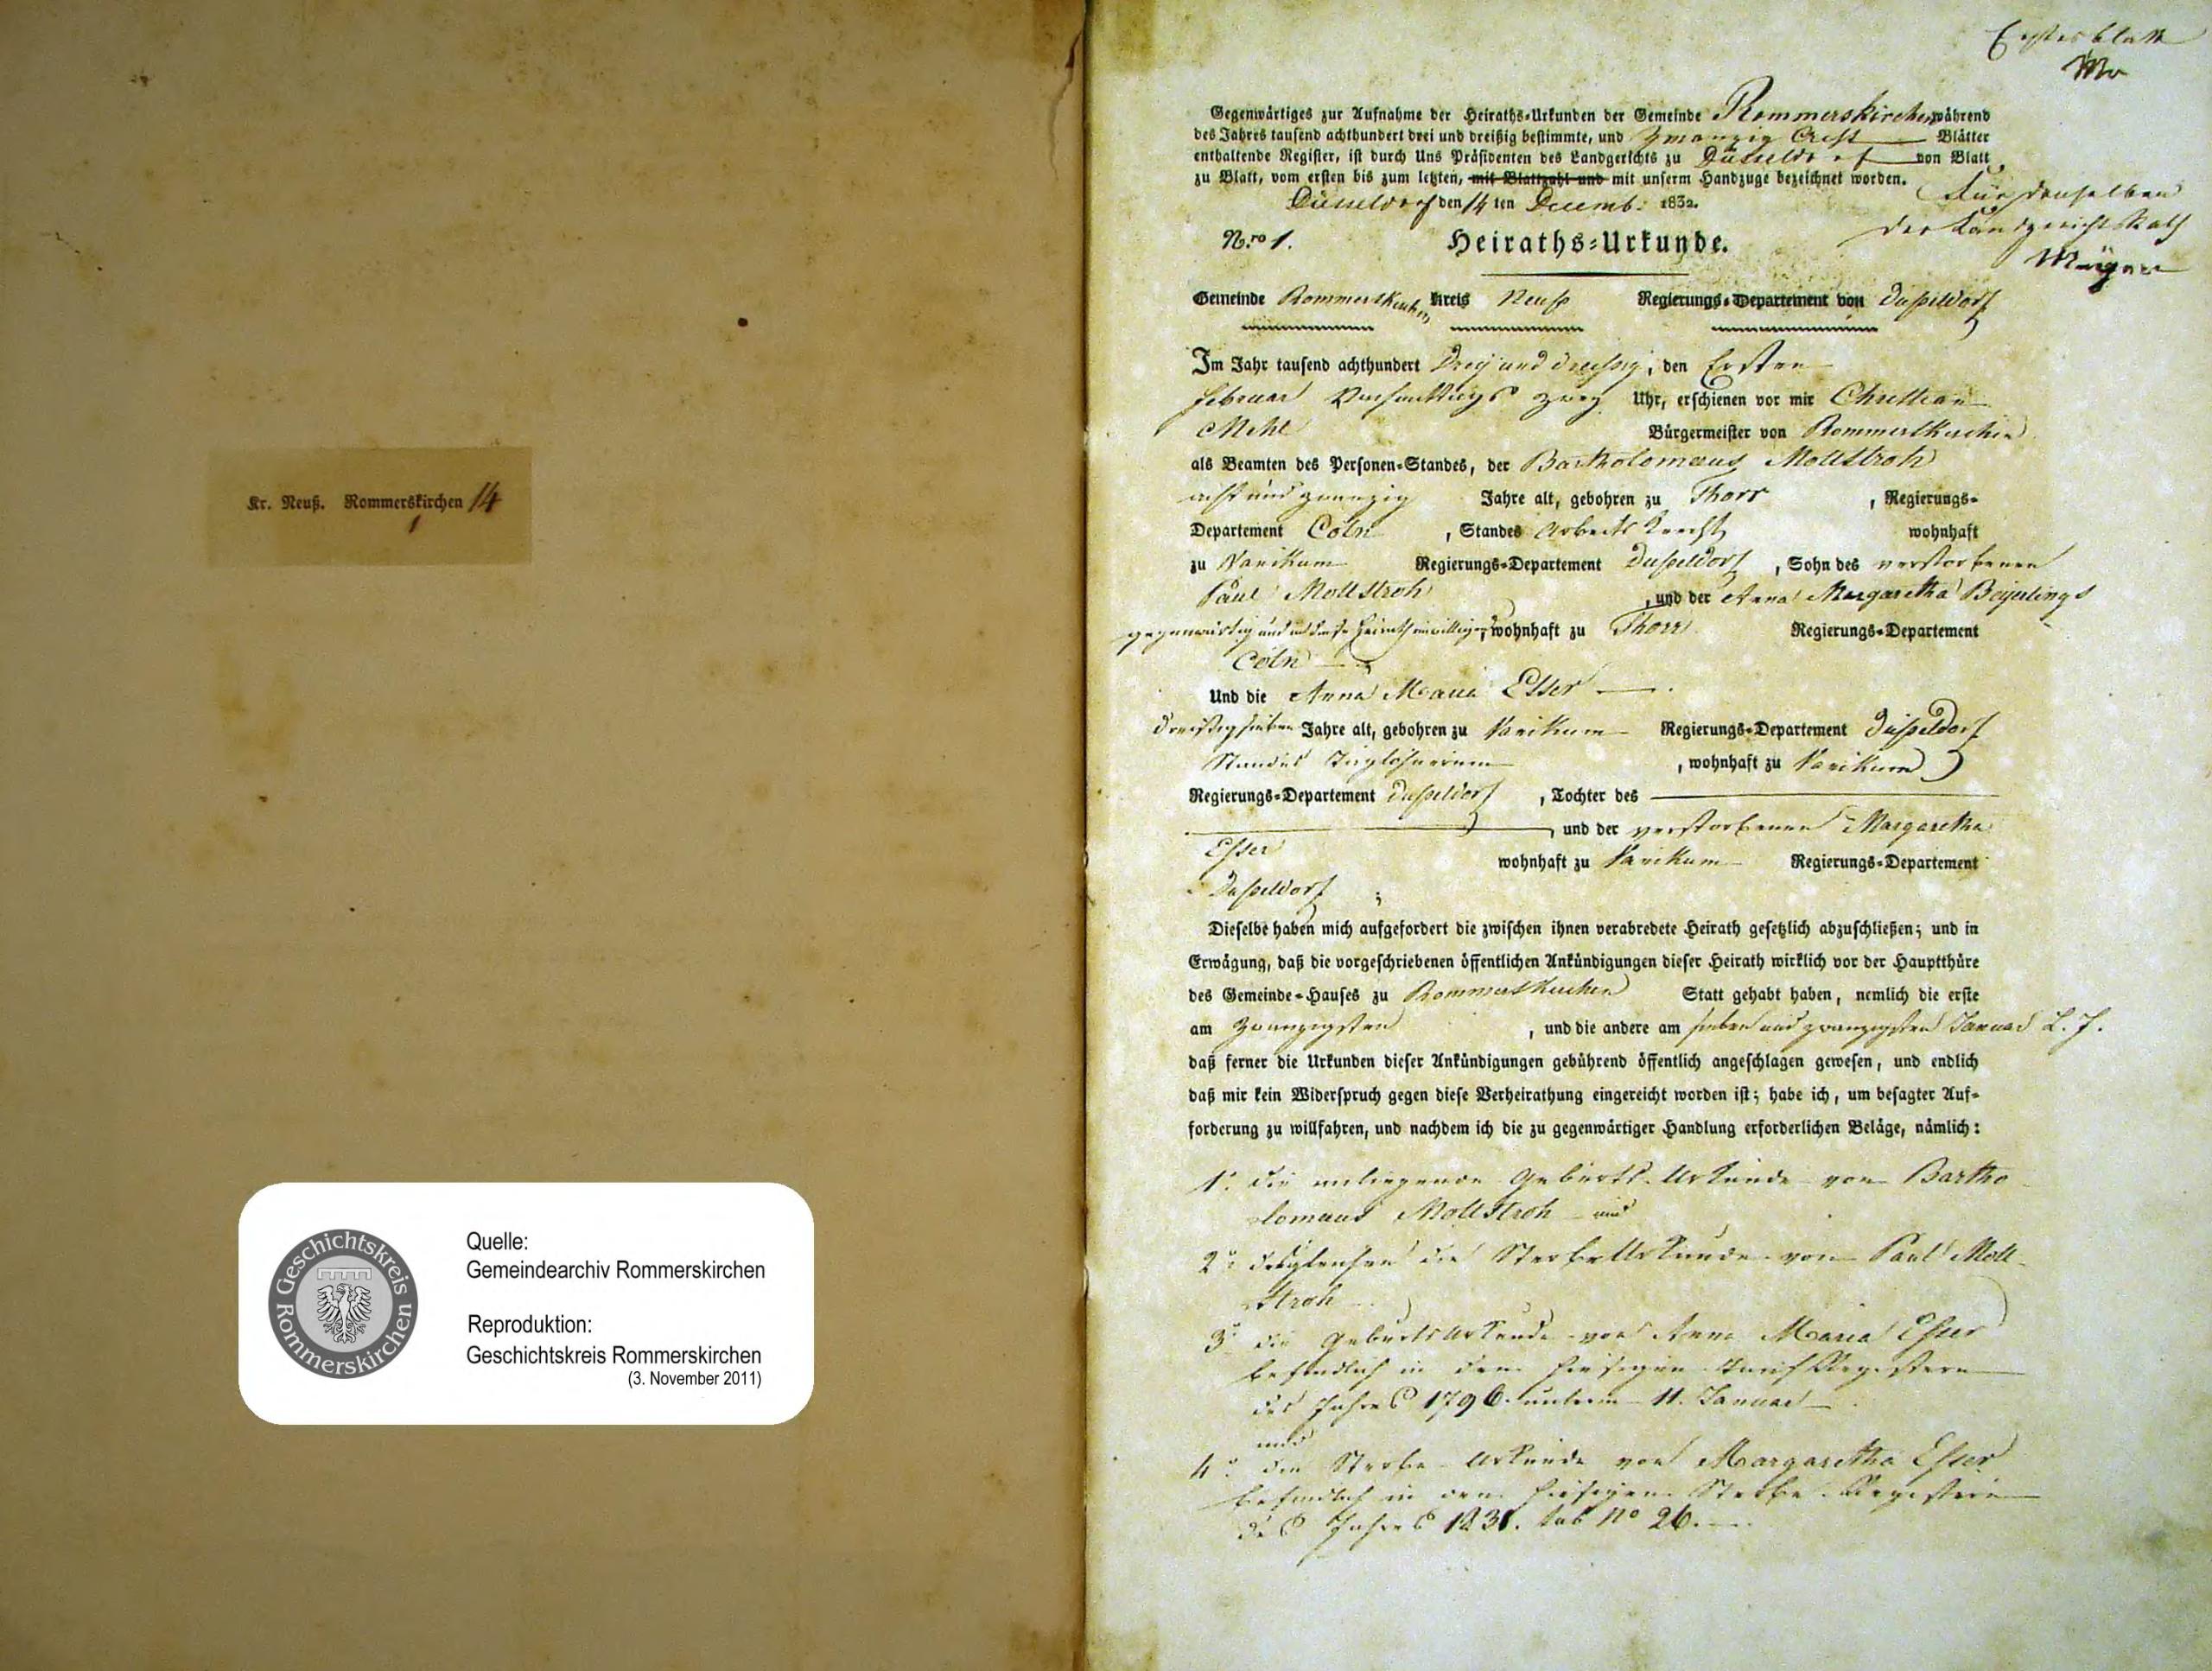 Kr. Neuß. Rommerskirchen 14
1
Geschichtskreis Rommerskirchen
Quelle:
Gemeindearchiv Rommerskirchen
Reproduktion:
Geschichtskreis Rommerskirchen
(3. November 2011)
Erstes blatt
Gegenwärtiges zur Aufnahme der Heiraths-Urkunden der Gemeinde Rommerskirchen während
des Jahres tausend achthundert drei und dreißig bestimmte, und zwanzig Acht Blätter
enthaltende Register, ist durch Uns Präsidenten des Landgerichts zu Düsseldorf von Blatt
zu Blatt, vom ersten bis zum letzten, mit Blattzahl und mit unserm Handzuge bezeichnet worden.
Düsseldorf den 14 ten Decemb. 1832.
Für denselben
der Landgerichts Rath
N.ro 1. Heiraths-Urkunde.
Gemeinde Rommerskirchen Kreis Neuß Regierungs-Departement von Dußeldorf
Im Jahr tausend achthundert Drey und dreißig, den Ersten
Februar Nachmittags zwey Uhr, erschienen vor mir Christian
Mehl Bürgermeister von Rommerskirchen
als Beamten des Personen-Standes, der Bartholomaeus Mollstroh
acht und zwanzig Jahre alt, gebohren zu Thorr, Regierungs-
Departement Cöln, Standes Arbeits Knecht wohnhaft
zu Vanikum Regierungs-Departement Dußeldorf, Sohn des verstorbenen
Paul Mollstroh, und der Anna Margaretha
gegenwärtig und in diese Heirath einwilligend, wohnhaft zu Thorr Regierungs-Departement
Cöln
Und die Anna Maria Esser
dreißig sieben Jahre alt, gebohren zu Vanikum Regierungs-Departement Dußeldorf
Standes Taglöhnerinn, wohnhaft zu Vanikum
Regierungs-Departement Dußeldorf, Tochter des
, und der verstorbenen Margaretha
Esser wohnhaft zu Vanikum Regierungs-Departement
Dußeldorf ;
Dieselbe haben mich aufgefordert die zwischen ihnen verabredete Heirath gesetzlich abzuschließen; und in
Erwägung, daß die vorgeschriebenen öffentlichen Ankündigungen dieser Heirath wirklich vor der Hauptthüre
des Gemeinde-Hauses zu Rommerskirchen Statt gehabt haben, nemlich die erste
am zwanzigsten, und die andere am sieben und zwanzigsten Januar L. J.
daß ferner die Urkunden dieser Ankündigungen gebührend öffentlich angeschlagen gewesen, und endlich
daß mir kein Widerspruch gegen diese Verheirathung eingereicht worden ist; habe ich, um besagter Auf-
forderung zu willfahren, und nachdem ich die zu gegenwärtiger Handlung erforderlichen Beläge, nämlich:
1° die anliegende Geburts-Urkunde von Bartho
lomaeus Mollstroh und
2° desgleichen die Sterbe Urkunde von Paul Moll-
stroh
3° die Geburts Urkunde von Anna Maria Esser
befindlich in den hiesigen Tauf Registern
des Jahres 1796 unterm 11. Januar
und
4° die Sterbe-Urkunde von Margaretha Esser
befindlich in den hiesigen Sterbe-Registern
des Jahres 1831. sub No 26.